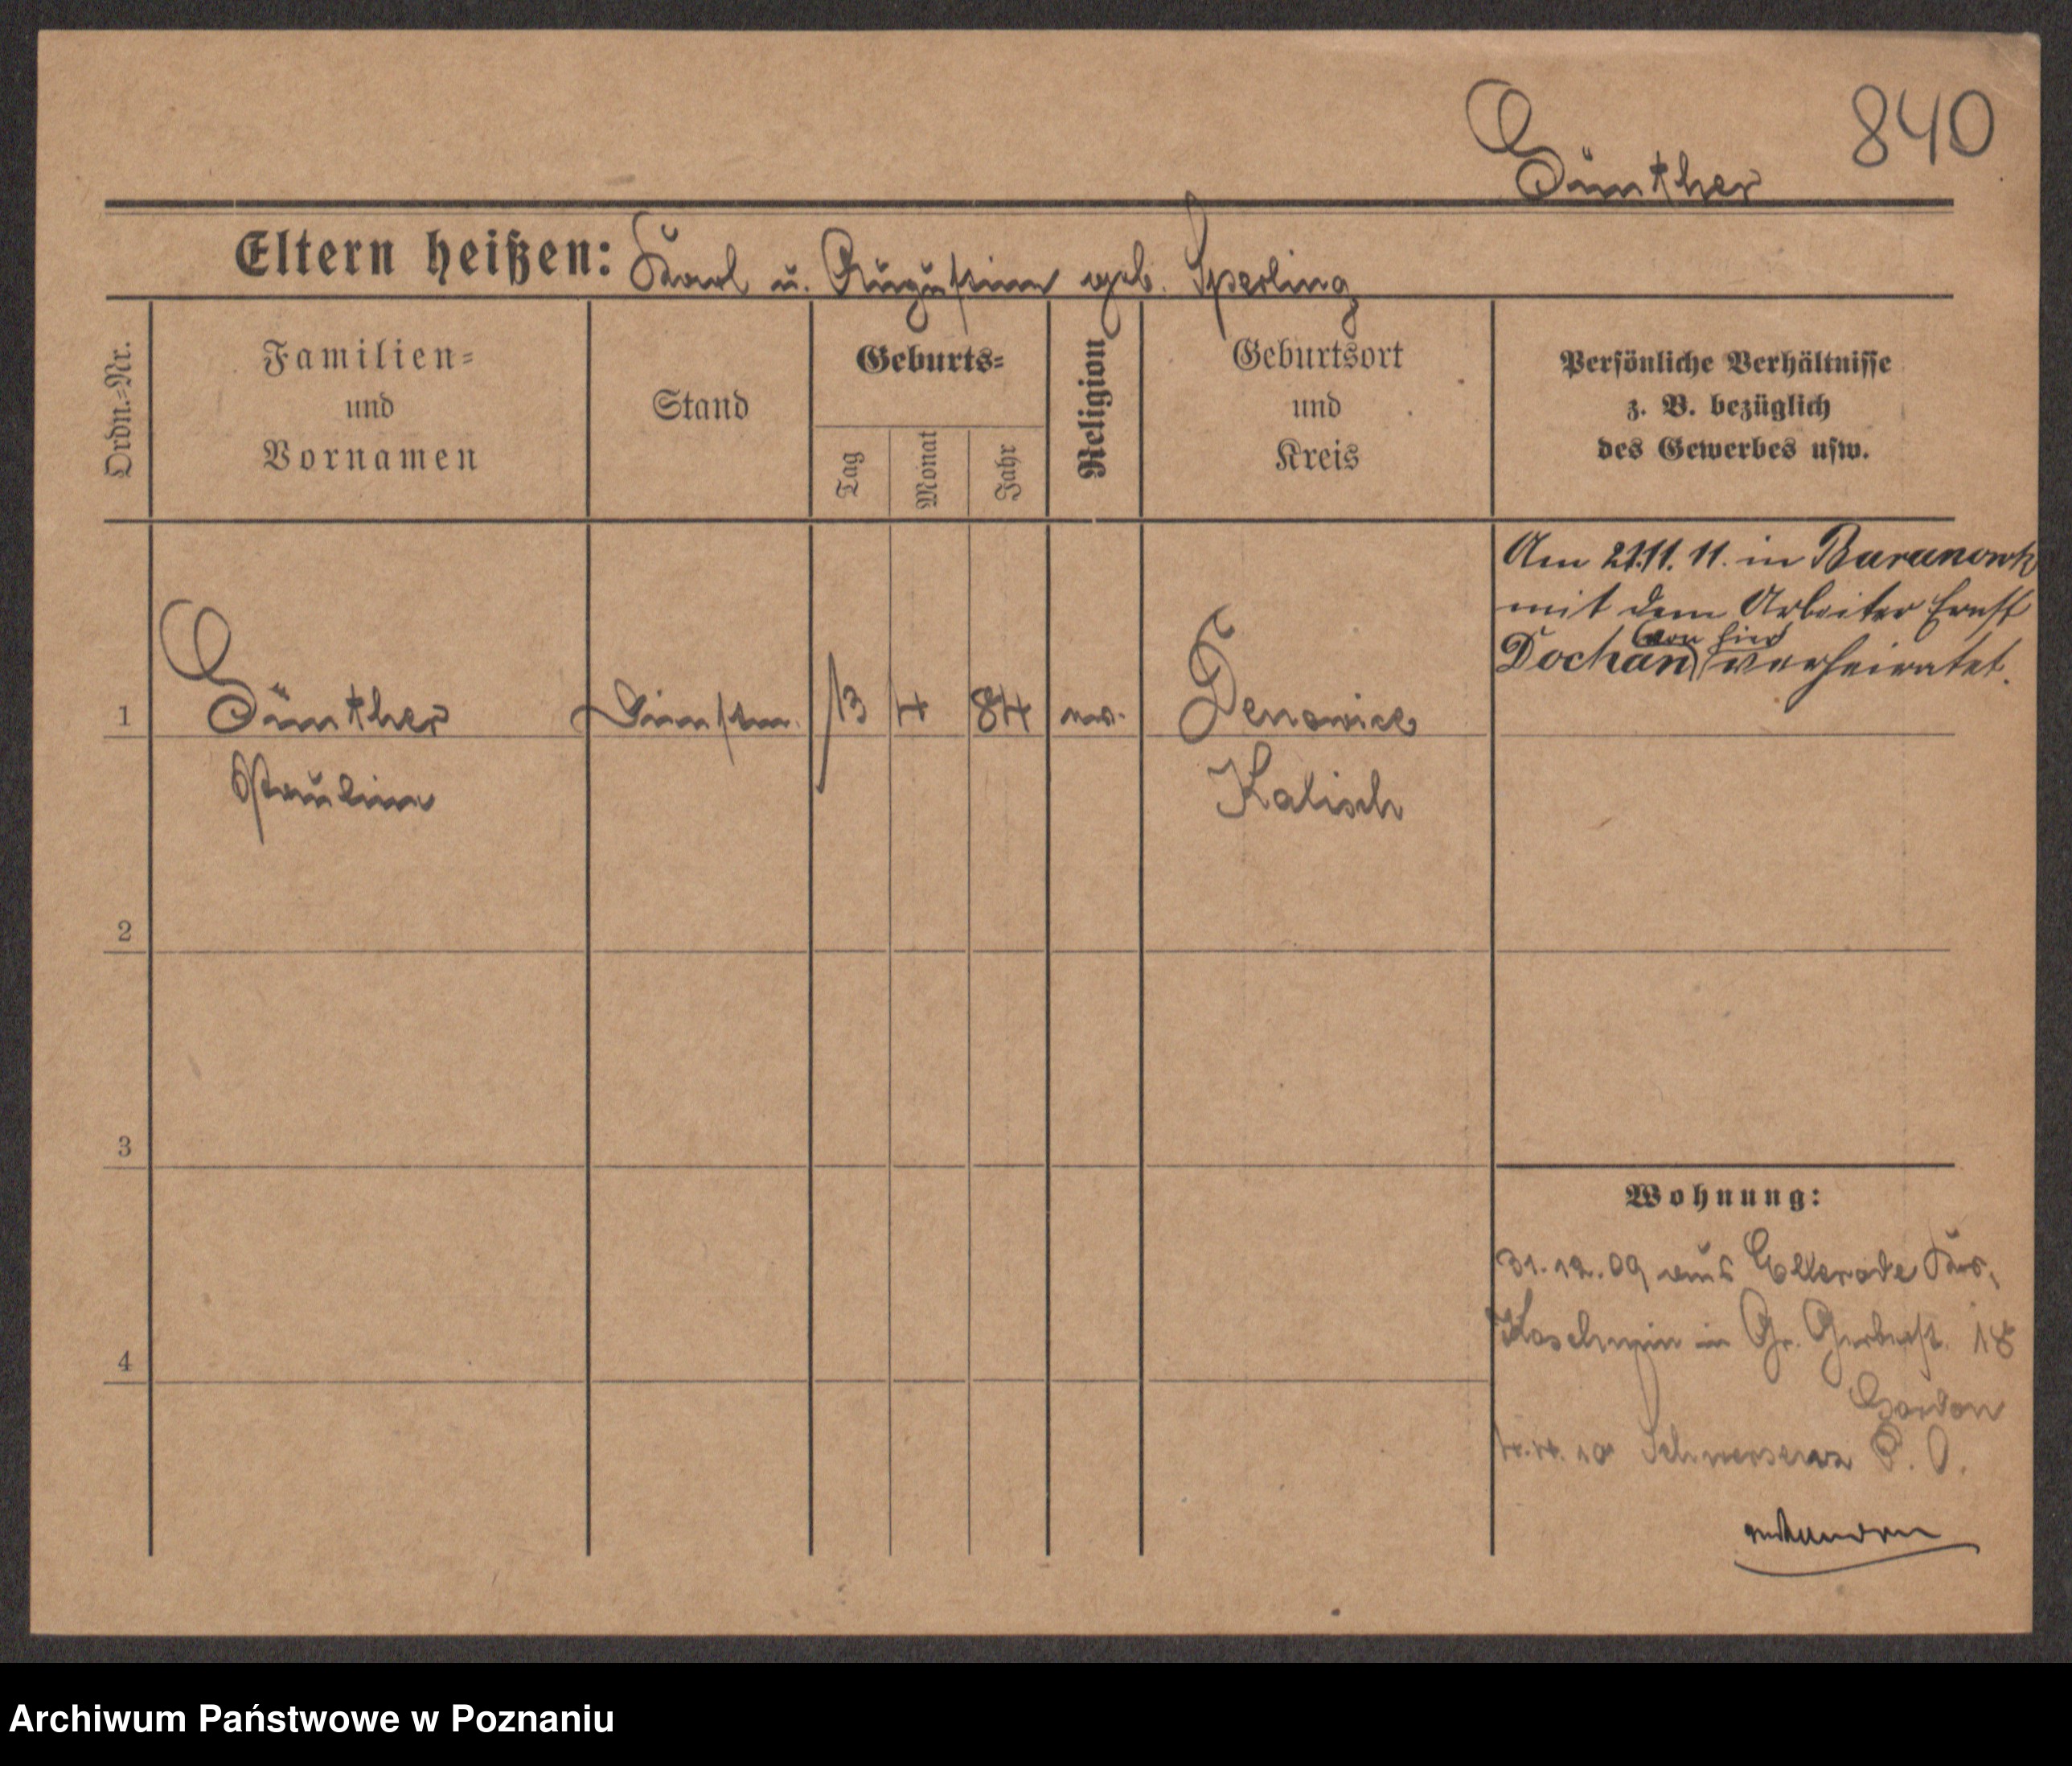 840
Günther
Eltern heißen: Karl u. Augustine geb. Sperling
Ordn.-Nr.
Familien-
und
Vornamen
Stand
Geburts-
Tag
Monat
Jahr
Religion
Geburtsort
und
Kreis
Persönliche Verhältnisse
z. B. bezüglich
des Gewerbes usw.
Am 21.11.11. in Baranowk
mit dem Arbeiter Ernst
(von hier)
Dochan verheiratet.
1 Günther 13 4 84 ev.
Pauline Kalisch
2
3
4
Wohnung:
31.12.09 aus Ellerode Krs.
Koschmin in Gr. Gerberst. 18
Gordon
Schwersenz P. O.
Archiwum Państwowe w Poznaniu